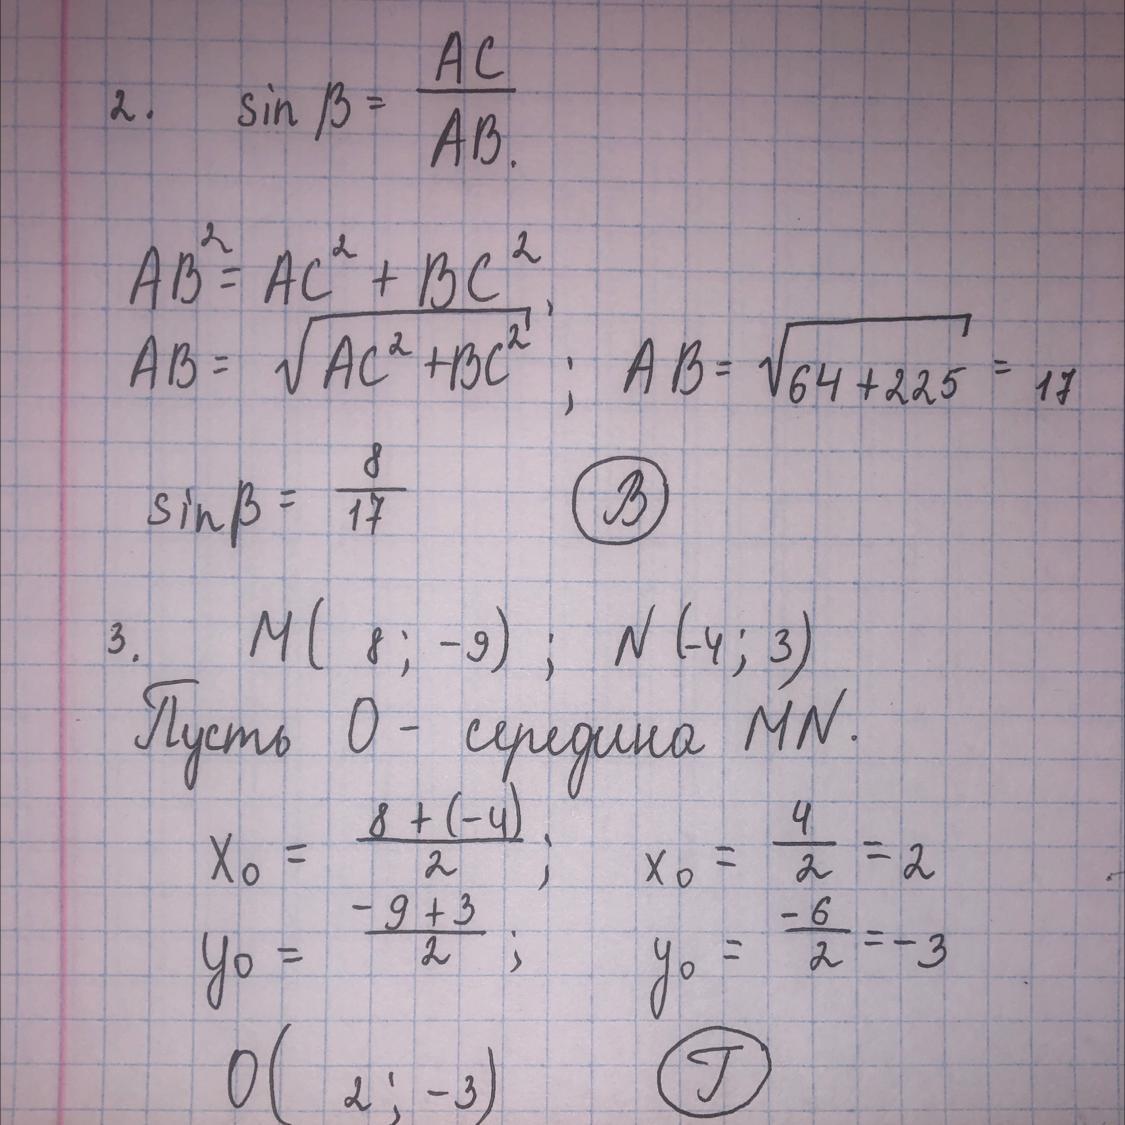 2. sin β = AC / AB.
AB² = AC² + BC²;
AB = √(AC² + BC²) ; AB = √(64 + 225) = 17
sin β = 8/17 В
3. M( 8 ; -9) ; N (-4 ; 3)
Пусть О - середина MN.
x₀ = (8 + (-4))/2 ; x₀ = 4/2 = 2
y₀ = (-9 + 3)/2 ; y₀ = -6/2 = -3
O( 2 ; -3) Г